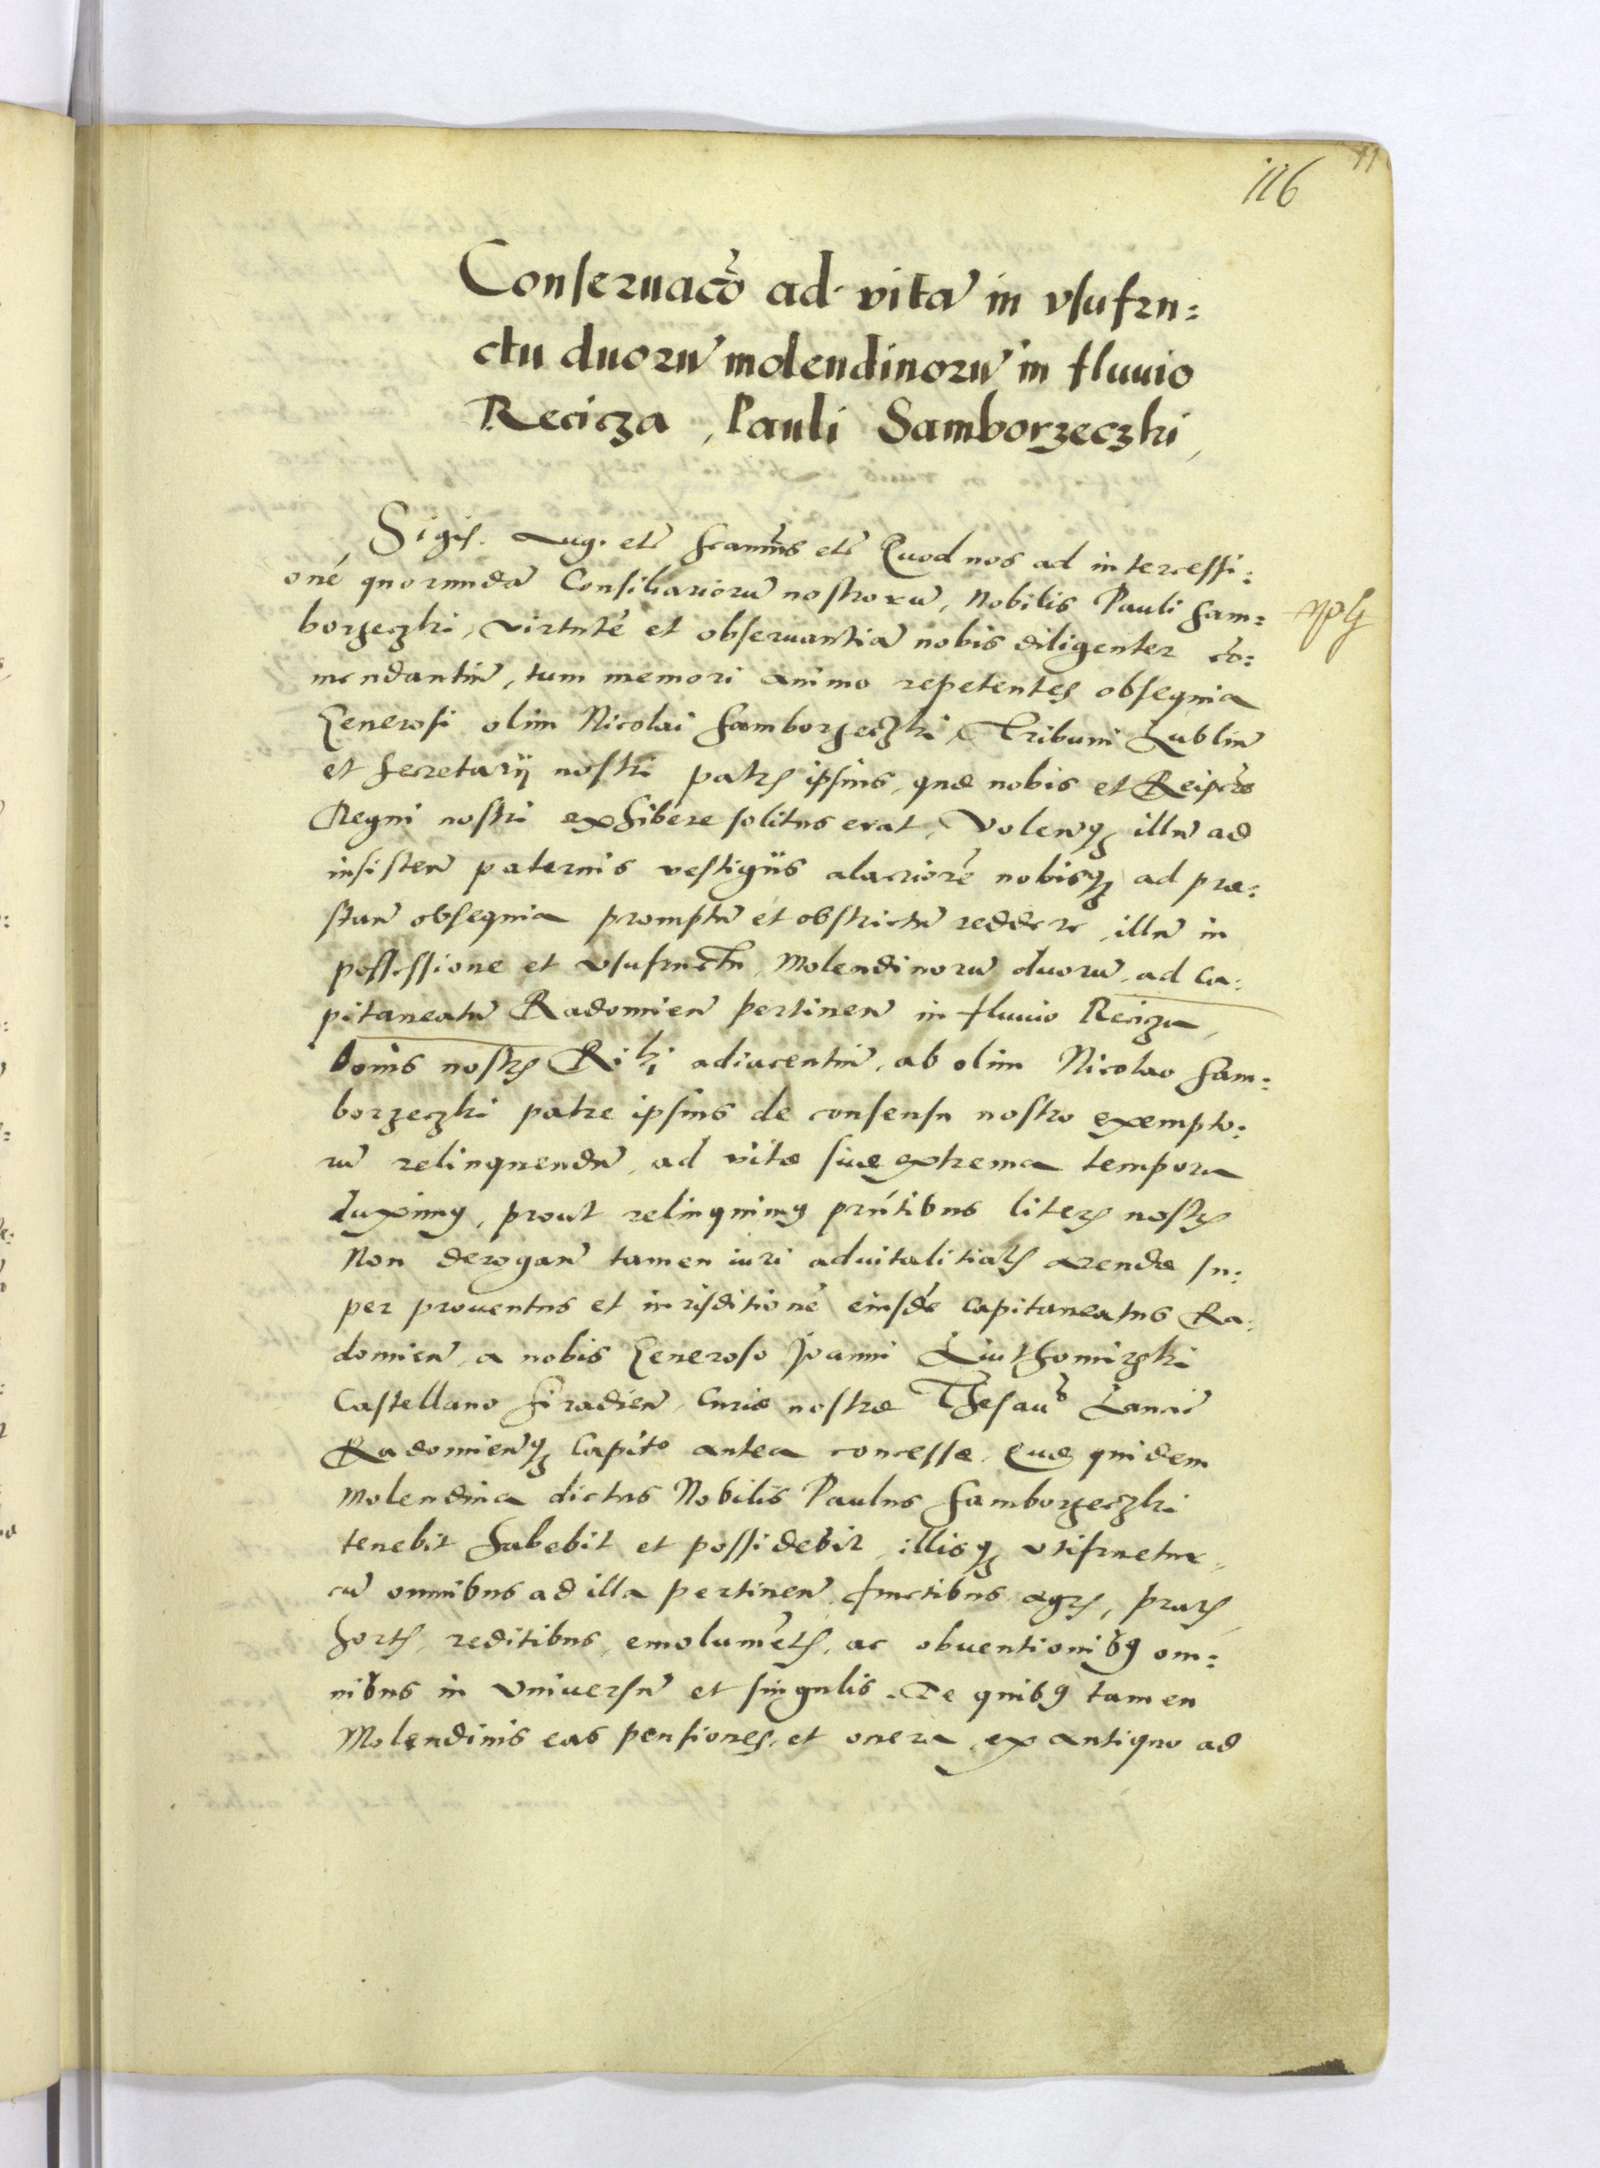 116
Conseruac͂o ad vitã in vsufru:
ctu duorũ molendinorũ in fluuio
Recicza, Pauli Samborzeczki,
Sigis. Aug. etc̃ ... etc̃ Quod nos ad intercessi:
onẽ quorundã Consiliariorũ nostrorũ, Nobilis Pauli Sam:
borzeczki, virtutẽ et obseruantiã nobis diligenter cõ:
mendantiũ, tum memori animo repetentes obsequia
Generosi olim Nicolai Samborzeczki, Tribuni Lubliñ
et Secretarij nostri patris ipsius, quæ nobis et Reipcæ
Regni nostri exhibere solitus erat, Volenq₃ illũ ad
insisteñ paternis vestigiis alacriorẽ nobisq₃ ad præ:
stañ obsequia promptũ et obstrictũ reddere, illũ in
possessione et vsufructu, Molendinorũ duorũ, ad Ca:
pitaneatũ Radomieñ pertineñ in fluuio Recicza,
bonis nostris ... adiacentiũ, ab olim Nicolao Sam:
borzeczki patre ipsius de consensu nostro exempto:
rũ relinquendũ, ad vitæ suæ extrema tempora
duximꝰ, prout relinquimꝰ pñtibus literis nostris
Non derogañ tamen iuri aduitalitiatis arendæ su:
per prouentus et iurisditionẽ eiusdẽ Capitaneatus Ra:
domieñ, a nobis Generoso Joanni Liuthomirzki
Castellano Siradieñ, Curiæ nostræ Thesauᵒ Lanciẽ
Radomieñq₃ Capitᵒ antea concessæ. Quæ quidem
Molendina dictus Nobilis Paulus Samborzeczki
tenebit habebit et possidebit, illisq₃ vtifruetur,
cũ omnibus ad illa pertineñ, fructibus agris, pratis
hortis, reditibus, emolumẽtis, ac obuentionibꝰ om:
nibus in vniuersũ et singulis. De quibꝰ tamen
Molendinis eas pensiones, et onera, ex antiquo ad